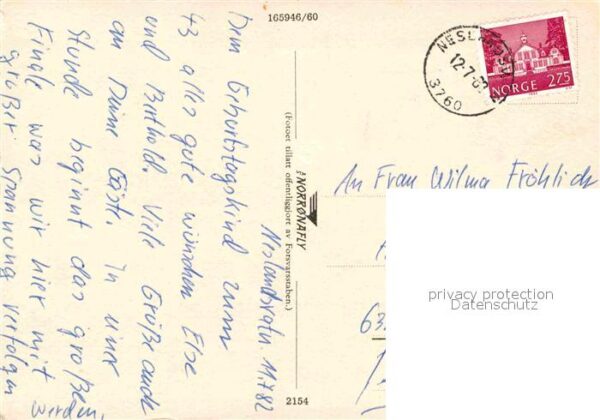 165946/60
Neslandsvatn. 11.7.82
Dem Geburtstagskind zum
43 alles gute wünschen Else
und Berthold. Viele Grüße auch
an Deine Gäste. In einer
Stunde beginnt das große
Finale was wir hier mit
großer Spannung verfolgen
werden.
(Fotoet tillatt offentliggjort av Forsvarsstaben.)
NORRØNAFLY
2154
12-7-82
3760
NORGE 275
An Frau Wilma Fröhlich
privacy protection
Datenschutz